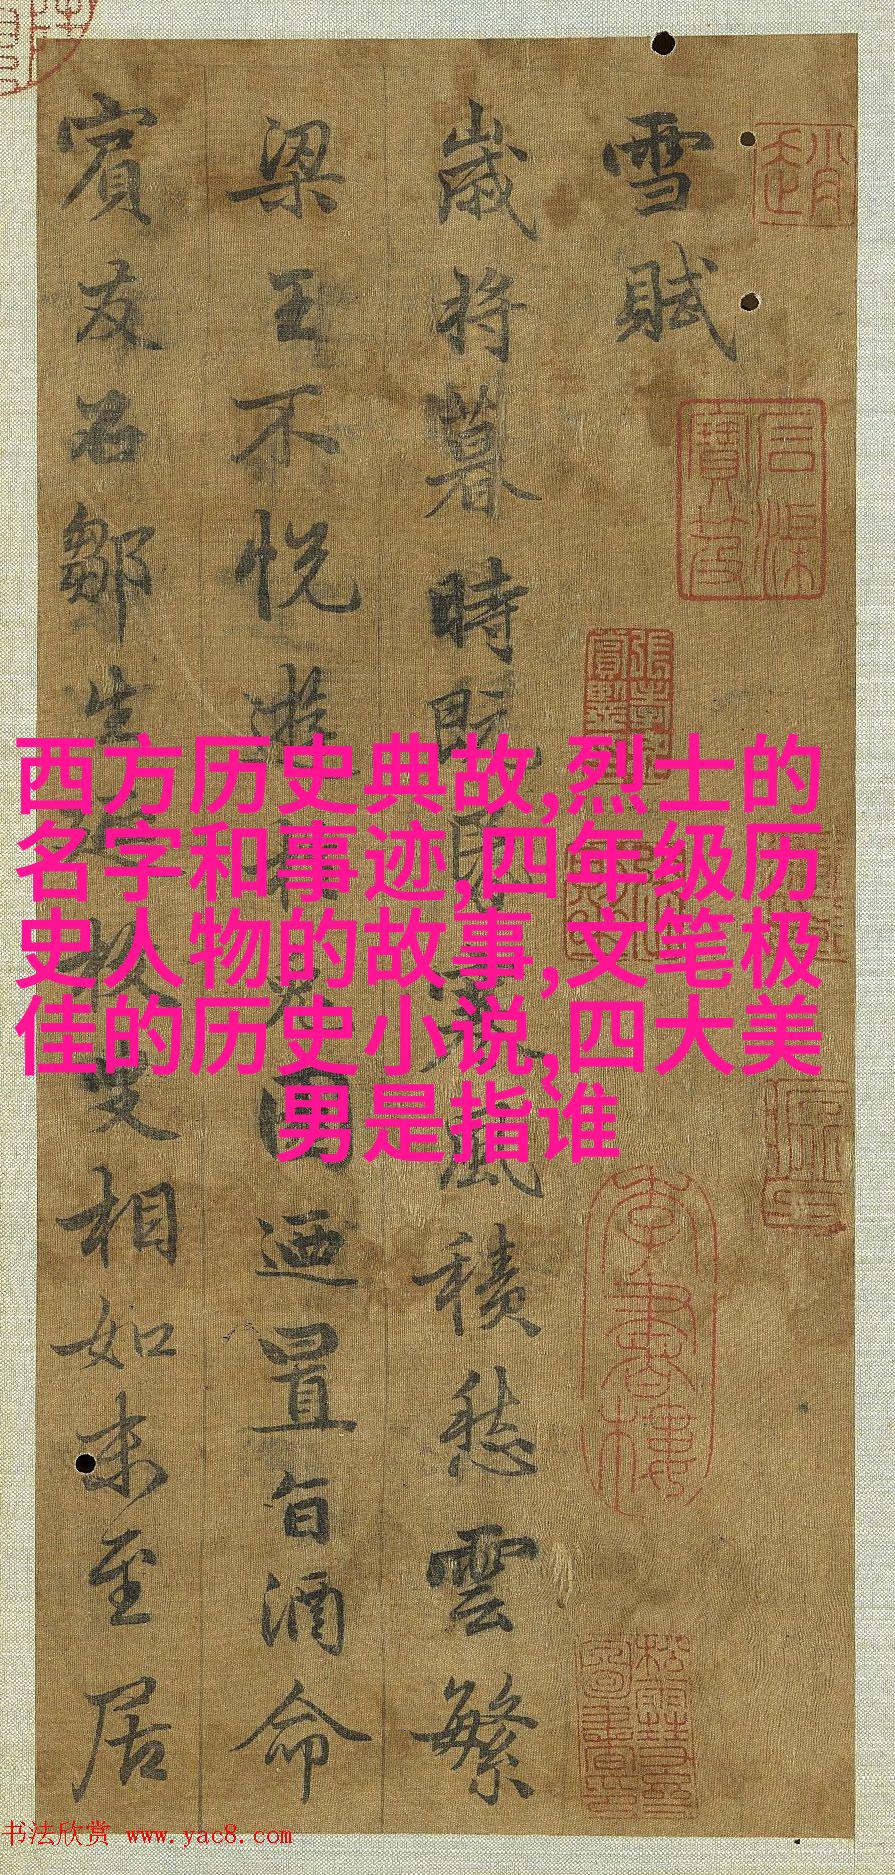 雪賦
歲將暮時既昏寒風積愁雲繁
梁王不悅游於兔園迺置旨酒命
賓友召鄒生延枚叟相如末至居
西方历史典故,烈士的
名字和事迹,四年级历
史人物的故事,文笔极
佳的历史小说,四大美
男是指谁
书法欣赏 www.yac8.com